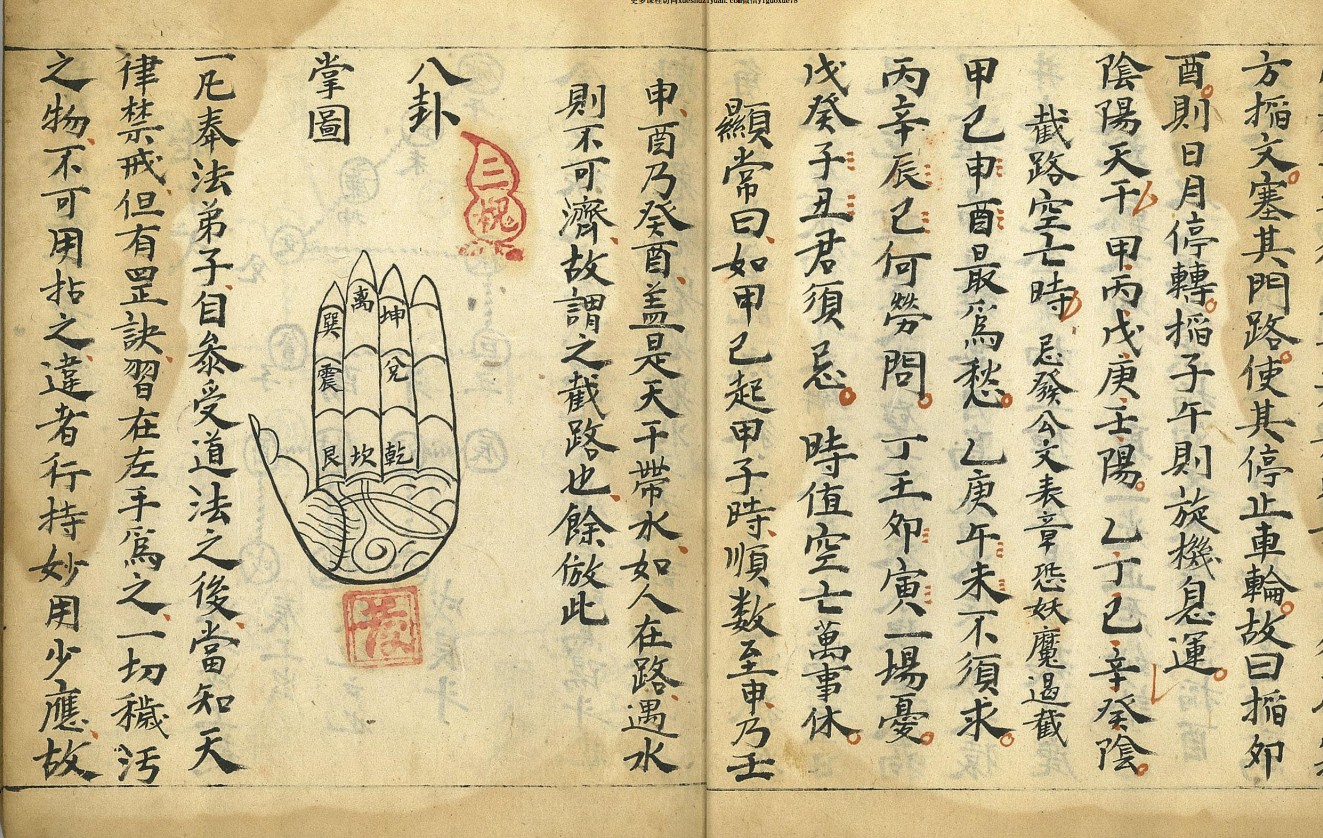 方搯文塞其門路使其停止車輪故曰搯卯
酉則日月停轉搯子午則旋機息運
陰陽天干 甲丙戊庚壬陽 乙丁己辛癸陰
截路空亡時 忌發公文表章恐妖魔遏截
甲己申酉最爲愁 乙庚午未不須求
丙辛辰巳何勞問 丁壬卯寅一場憂
戊癸子丑君須忌 時值空亡萬事休
顯常曰如甲己起甲子時順数至申乃壬
申酉乃癸酉盖是天干帶水如人在路遇水
則不可濟故謂之截路也餘倣此
八卦
掌圖
巽 離 坤
震 兌
艮 坎 乾
一凡奉法弟子自叅受道法之後當知天
律禁戒但有罡訣習在左手爲之一切穢污
之物不可用拈之違者行持妙用少應故